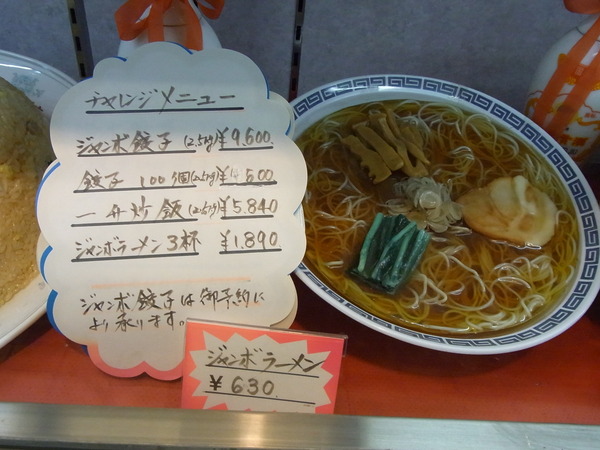 チャレンジメニュー
ジャンボ餃子(2.5kg)¥9,600
餃子 100個(2.5kg)¥4,500
一升炒飯(2.5kg)¥5,840
ジャンボラーメン3杯 ¥1,890
ジャンボ餃子は御予約に
より承ります。
ジャンボラーメン
¥630